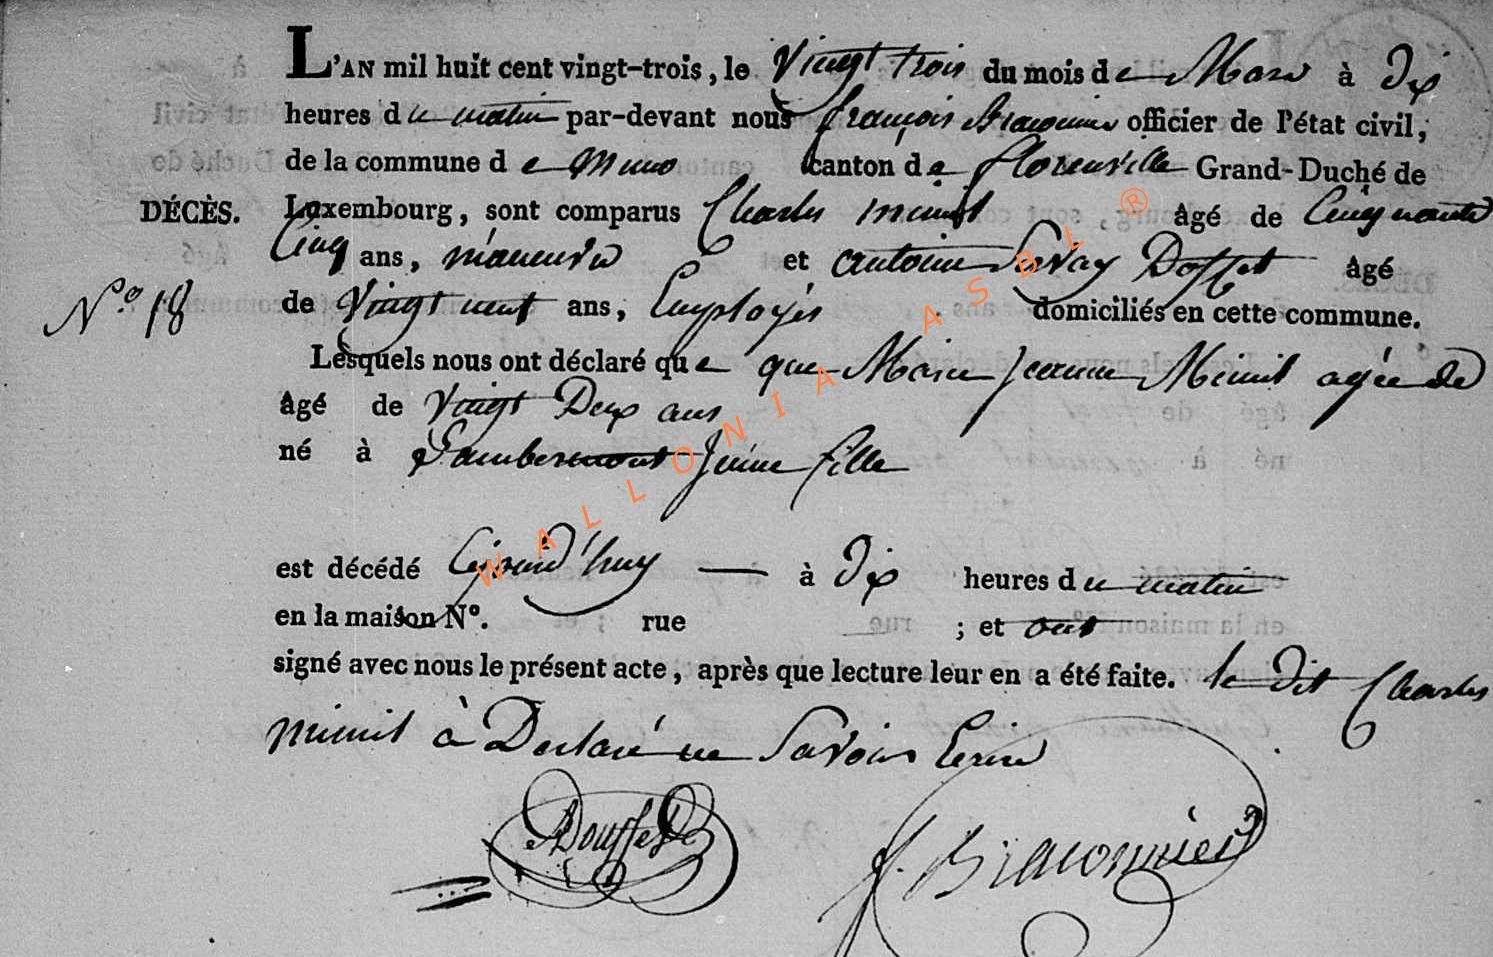 L'AN mil huit cent vingt-trois, le Vingt trois du mois de Mars à Dix
heures du matin par-devant nous françois Braconnier officier de l'état civil,
de la commune de Muno canton de florenville Grand-Duché de
DÉCÈS. Luxembourg, sont comparus Charles minit âgé de Cinquante
Cinq ans, maneuvre et antoine Servay Doffet âgé
N.o 18 de Vingt neuf ans, Employés domiciliés en cette commune.
Lesquels nous ont déclaré que que Marie Jeanne Minil agée de
âgé de Vingt Deux ans
né à Lambermont Jeune fille
est décédé à Dix heures du matin
en la maison N°. rue ; et ont
signé avec nous le présent acte, après que lecture leur en a été faite. le dit Charles
minil à Declaré ne Savoir Ecrire
Douffet
f. Braconnier
WALLONIA ASBL ®